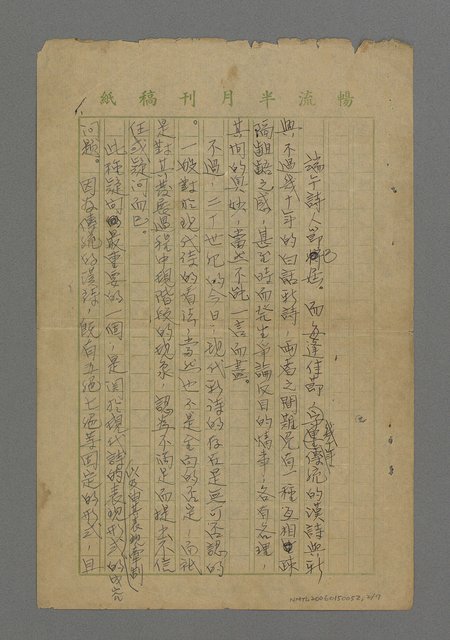 暢流半月刊稿紙
端午詩人節已屆。而每逢佳節,幾千年傳統的漢詩與新
興不過幾十年的白話新詩,兩者之間難免有一種互相疎
隔齟齬之感,甚至時而發生爭論反目的情事,各有各理,
其間的異妙,當然不能一言而盡。
不過,二十世紀的今日,現代新詩的存在是無可否認的
。一般對於現代詩的看法,當然也不是全面的否定,而祇
是對其發展過程中現階段的現象,認為不滿足而提出不信
任或疑問而已。
此種疑問最重要的一個,是關於現代詩的表現形式的
以及由其表現
問題。因為傳統的漢詩,既有五絕七絕等固定的形式,且
NMTL20060150052, 2/7